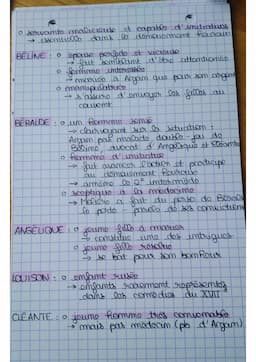 o servante malicieuse et capable d'initiatives
→ essentielle dans le dénouement heureux
BÉLINE : o épouse perfide et vicieuse
→ fait semblant d'être attentionnée
o femme intéressée
→ mariée à Argan que pour son argent
o manipulatrice
→ s'assure d'envoyer les filles au
couvent
BÉRALDE : o un homme sensé
→ clairvoyant sur la situation :
Argan pas malade, double-jeu de
Béline, avocat d'Angélique et
o homme d'initiative
→ fait avancer l'action et participe
au dénouement heureux
→ amène le 2e intermède
o sceptique à la médecine
→ Molière a fait du perso de Béralde
le porte-parole de ses convictions
ANGÉLIQUE : o jeune fille à marier
→ constitue une des intrigues
o jeune fille résolue
→ se bat pour son bonheur
LOUISON : o enfant rusée
→ enfants rarement représentés
dans les comédies du XVII
CLÉANTE : o jeune homme très convenable
→ mais pas médecin (pb d'Argan)